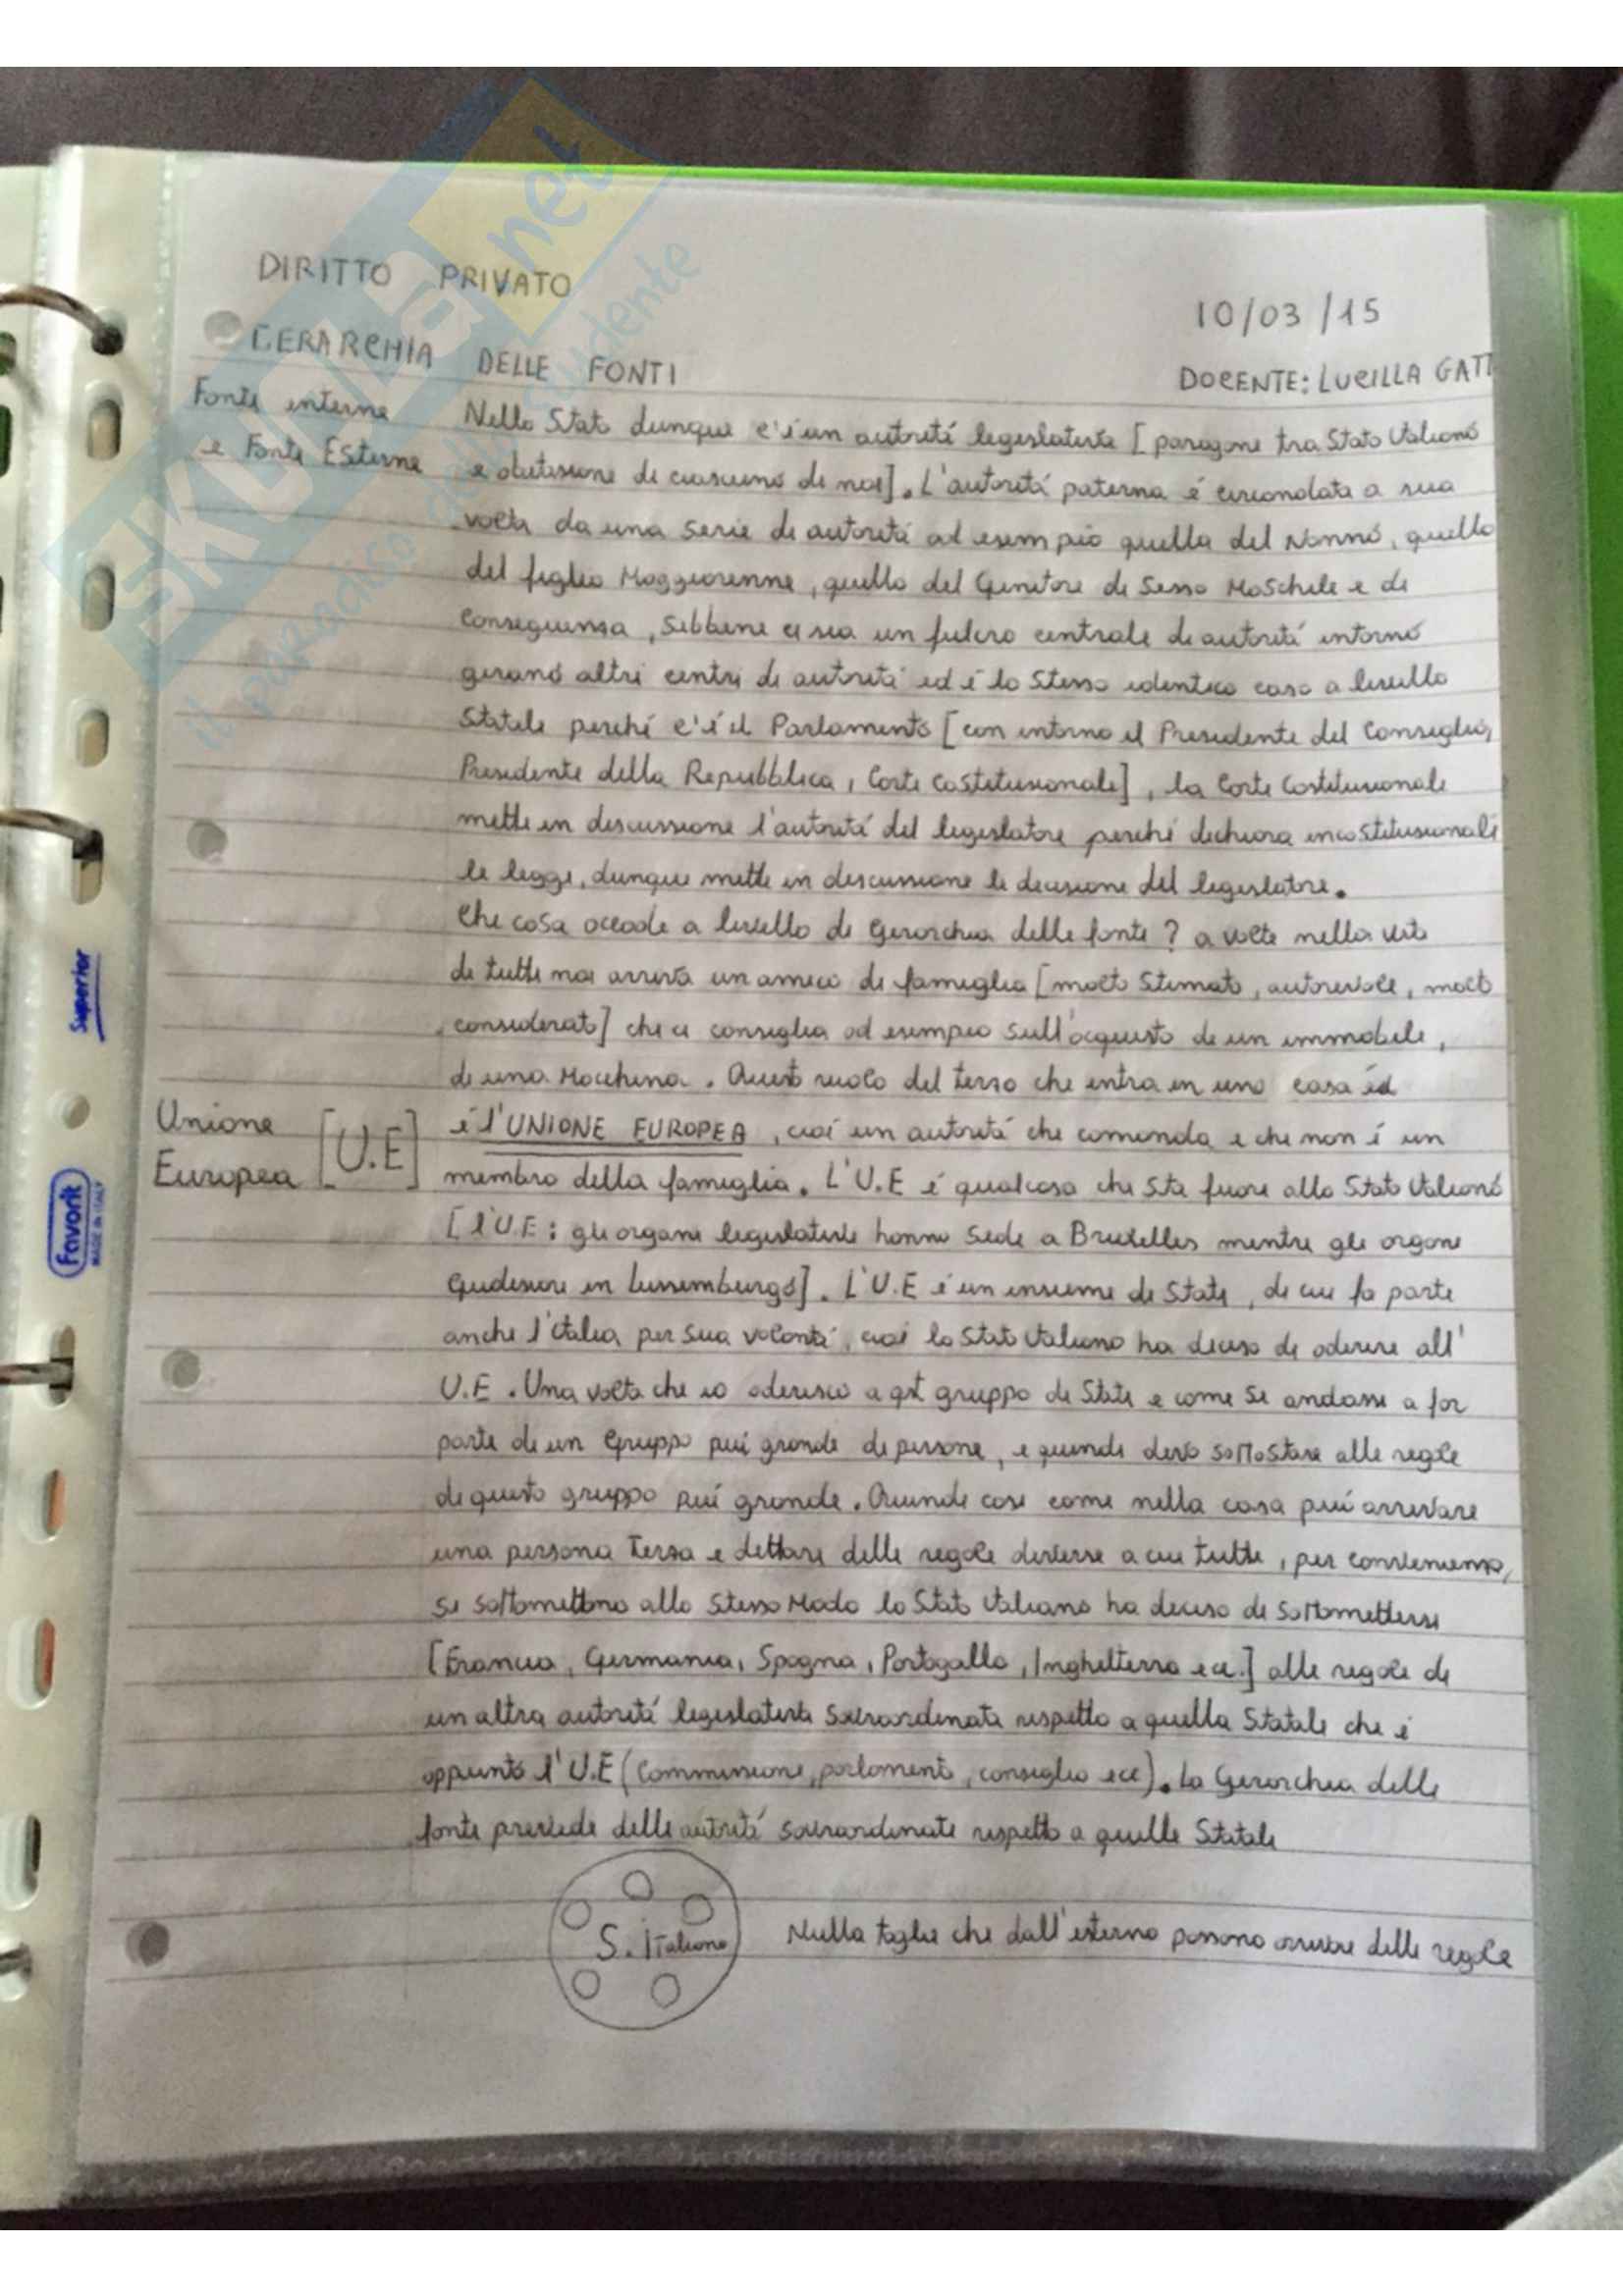 DIRITTO PRIVATO
10/03/15
GERARCHIA DELLE FONTI
DOCENTE: LUCILLA GATT
Fonti interne
e Fonti Esterne
Nello Stato dunque c'é un autoritá legislativa [paragone tra Stato Italiano
e abitazione di ciascuno di noi]. L'autoritá paterna é circondata a sua
volta da una serie di autoritá ad esempio quella del Nonno, quello
del figlio Maggiorenne, quello del Genitore di Sesso Maschile e di
conseguenza, sebbene ci sia un fulcro centrale di autoritá intorno
girano altri centri di autoritá ed é lo stesso identico caso a livello
Statale perché c'é il Parlamento [con intorno il Presidente del Consiglio,
Presidente della Repubblica, Corte Costituzionale], la Corte Costituzionale
mette in discussione l'autoritá del legislatore perché dichiara incostituzionali
le leggi, dunque mette in discussione le decisione del legislatore.
Che cosa accade a livello di Gerarchia delle fonti? a volte nella vita
di tutti noi arriva un amico di famiglia [molto stimato, autorevole, molto
considerato] che ci consiglia ad esempio sull'acquisto di un immobile,
di una Macchina. Questo ruolo del terzo che entra in una casa
Unione
Europea [U.E]
é l'UNIONE EUROPEA, cioé un autoritá che comanda e che non é un
membro della famiglia. L'U.E é qualcosa che sta fuori allo Stato Italiano
[l'U.E: gli organi legislativi hanno sede a Bruxelles mentre gli organi
Giudiziari in Lussemburgo]. L'U.E é un insieme di Stati, di cui fa parte
anche l'italia per sua volontá, cioé lo Stato Italiano ha deciso di aderire all'
U.E. Una volta che io aderisco a qst gruppo di Stati e come se andassi a far
parte di un Gruppo piú grande di persone, e quindi devo sottostare alle regole
di questo gruppo piú grande. Quindi cosi come nella casa puó arrivare
una persona Terza e dettare delle regole diverse a cui tutti, per convenienza,
si sottomettono allo stesso Modo lo Stato Italiano ha deciso di sottomettersi
[Francia, Germania, Spagna, Portogallo, Inghilterra ecc.] alle regole di
un altra autoritá legislativa sovraordinata rispetto a quella Statale che é
appunto l'U.E (Commissione, parlamento, consiglio ecc). La Gerarchia delle
fonti prevede delle autoritá sovraordinate rispetto a quelle Statale
S. Italiano
Nulla toglie che dall'esterno possono arrivare delle regole
Superior
Favorit
MADE IN ITALY
SKUOLA.net
il paradiso dello studente